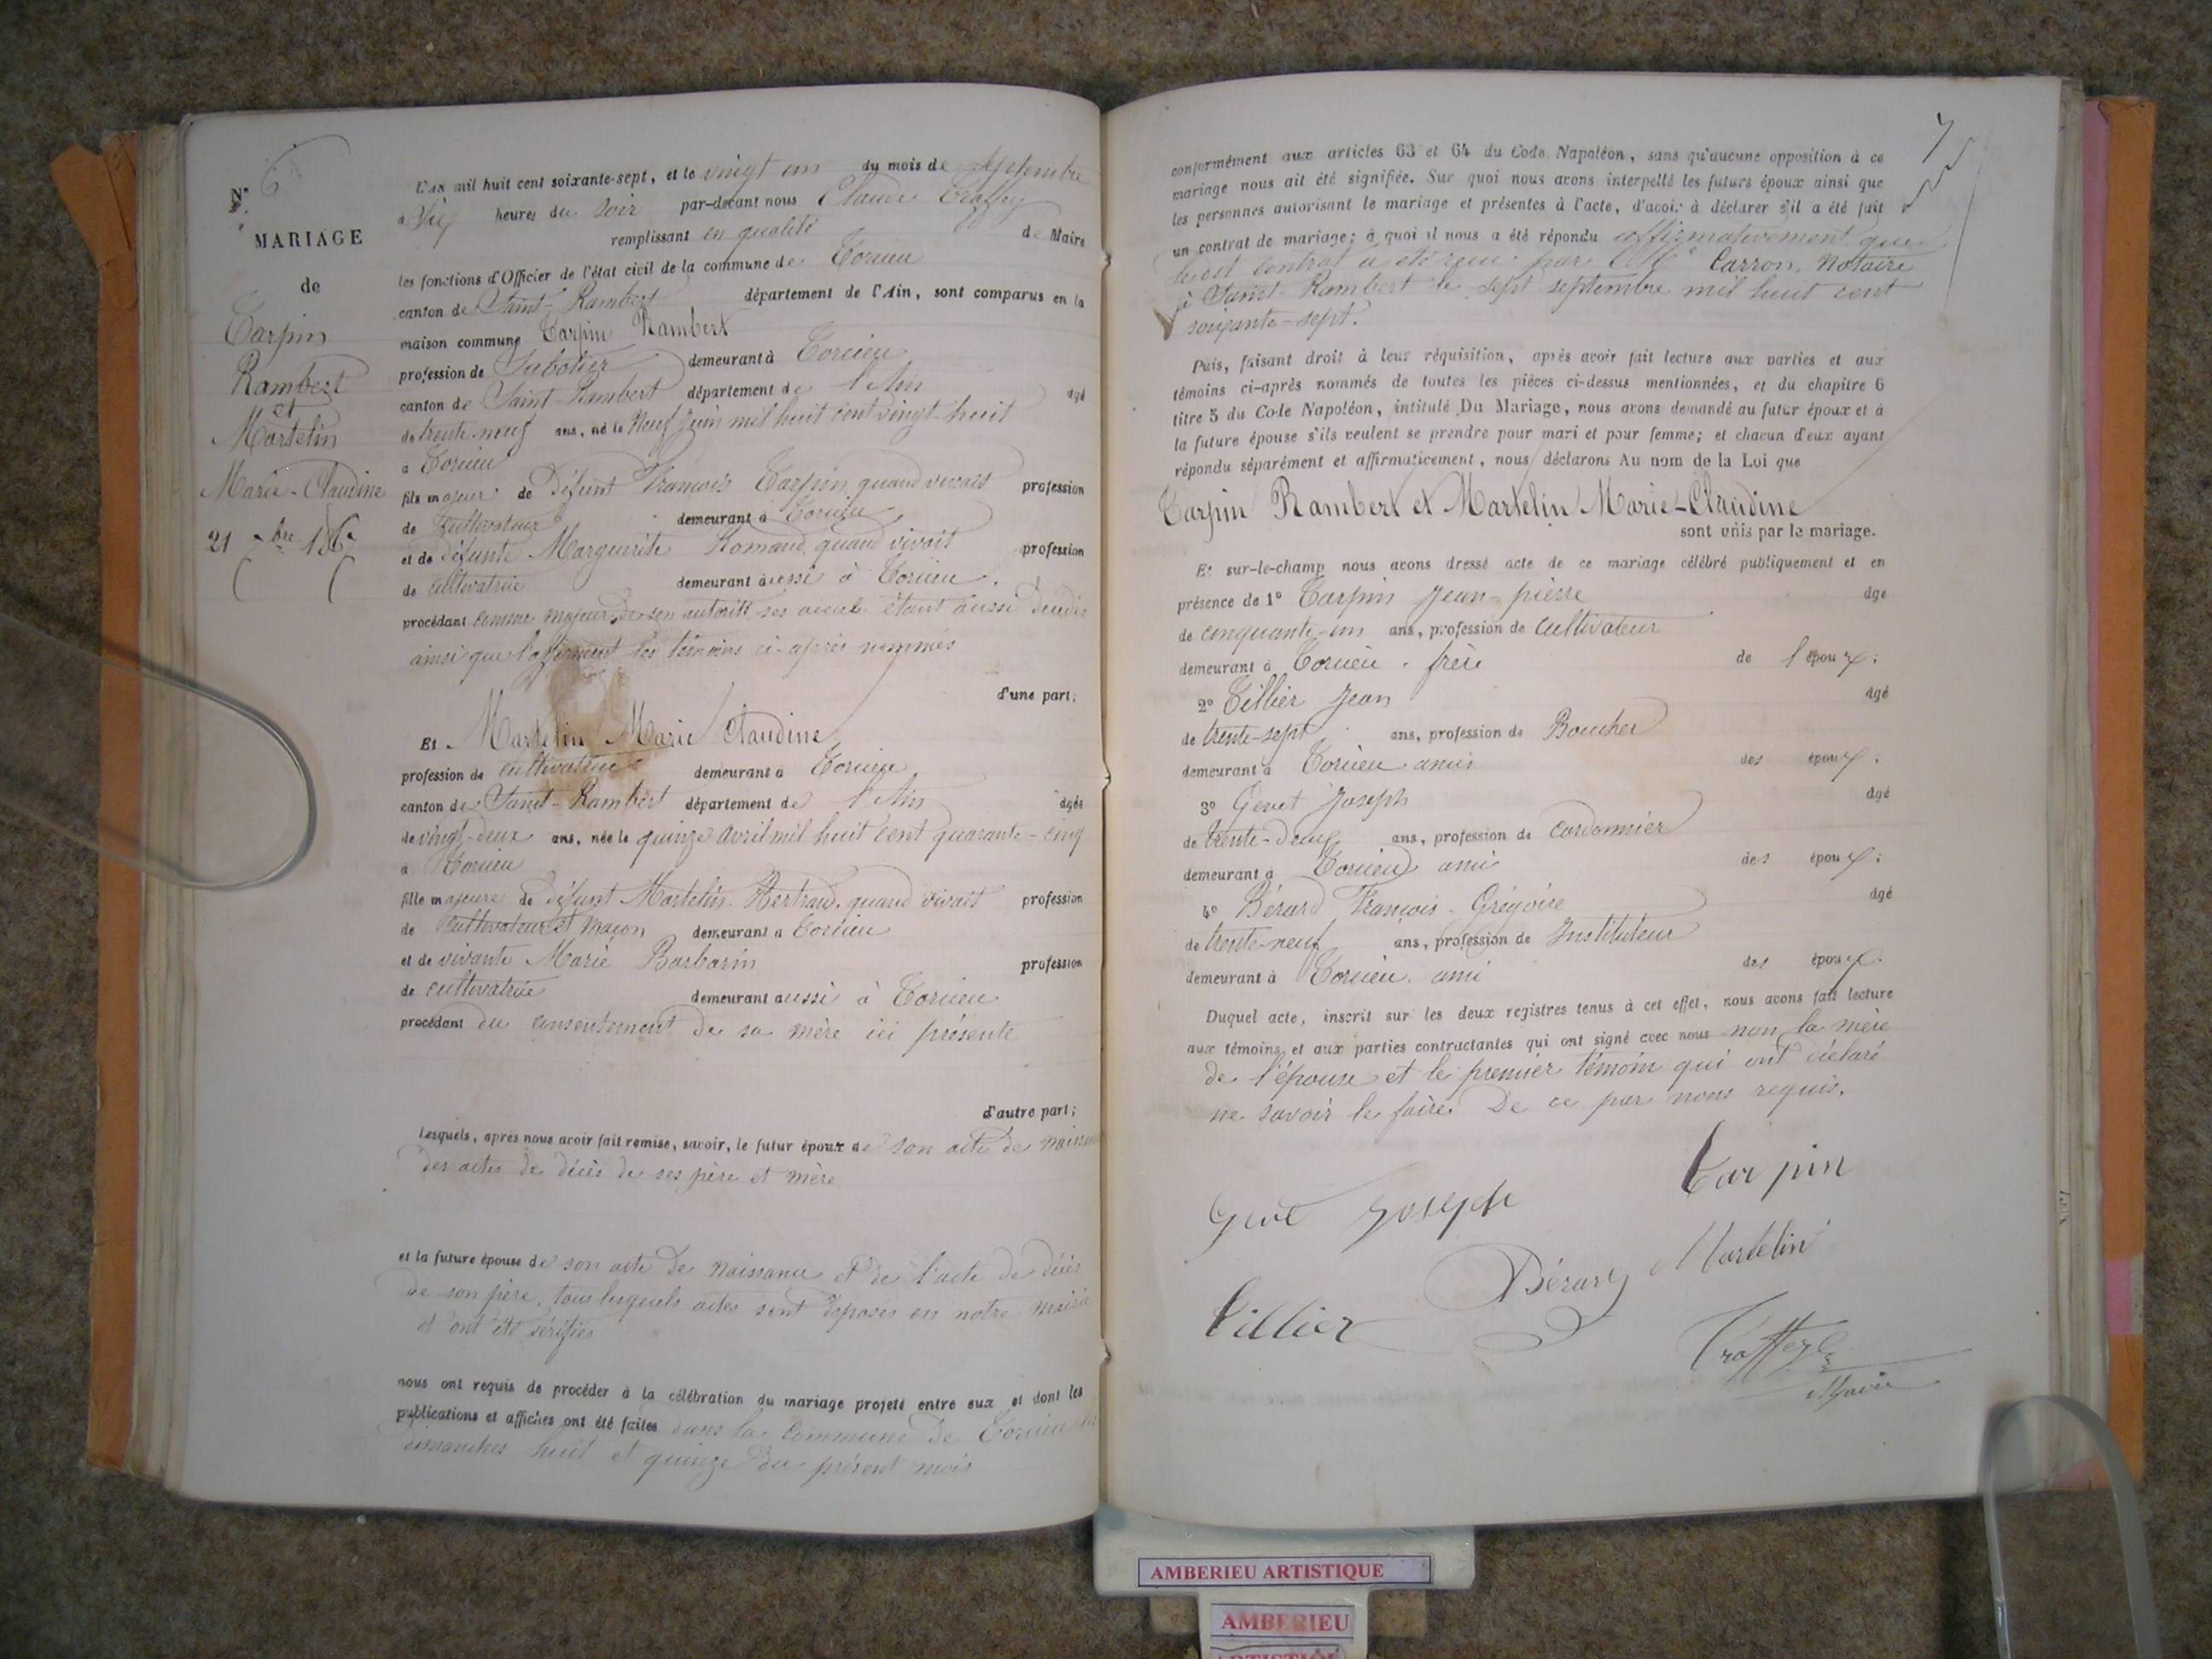 N° 6
MARIAGE
de
Tarpin
Rambert
et
Martelin
Marie-Claudine
21 bre 186
L'an mil huit cent soixante-sept, et le vingt un du mois de septembre
à Six heures du soir par-devant nous Claude Traffey
remplissant en qualité de Maire
les fonctions d'Officier de l'état civil de la commune de Torcieu
canton de Saint-Rambert département de l'Ain, sont comparus en la
maison commune Tarpin Rambert
profession de Sabotier demeurant à Torcieu
canton de Saint-Rambert département de l'Ain âgé
de trente-neuf ans, né le Neuf Juin mil huit cent vingt-huit
à Torcieu
fils majeur de Défunt François Tarpin quand vivait profession
de Cultivateur demeurant à Torcieu
et de défunte Marguerite Romand quand vivait profession
de cultivatrice demeurant aussi à Torcieu.
procédant comme majeur de son autorité, ses aieuls étant aussi décédés
ainsi que l'affirment les témoins ci-après nommés
d'une part;
Et Martelin Marie Claudine
profession de cultivatrice demeurant à Torcieu
canton de Saint-Rambert département de l'Ain âgée
de vingt-deux ans, née le quinze avril mil huit cent quarante-cinq
à Torcieu
fille majeure de défunt Martelin Bertrand, quand vivait profession
de Cultivateur et maçon demeurant à Torcieu
et de vivante Marie Barbarin profession
de cultivatrice demeurant aussi à Torcieu
procédant du consentement de sa mère ici présente
d'autre part;
Lesquels, après nous avoir fait remise, savoir, le futur époux de son acte de
des actes de décès de ses père et mère
et la future épouse de son acte de naissance et de l'acte de décès
de son père, tous lesquels actes sont déposés en notre mairie
et ont été vérifiés
nous ont requis de procéder à la célébration du mariage projeté entre eux et dont les
publications et affiches ont été faites dans la commune de Torcieu les
dimanches huit et quinze du présent mois
7
conformément aux articles 63 et 64 du Code Napoléon, sans qu'aucune opposition à ce
mariage nous ait été signifiée. Sur quoi nous avons interpellé les futurs époux ainsi que
les personnes autorisant le mariage et présentes à l'acte, d'avoir à déclarer s'il a été fait
un contrat de mariage; à quoi il nous a été répondu affirmativement que
contrat a été reçu par Me Carron, Notaire
à Saint-Rambert le sept septembre mil huit cent
soixante-sept.
Puis, faisant droit à leur réquisition, après avoir fait lecture aux parties et aux
témoins ci-après nommés de toutes les pièces ci-dessus mentionnées, et du chapitre 6
titre 5 du Code Napoléon, intitulé Du Mariage, nous avons demandé au futur époux et à
la future épouse s'ils veulent se prendre pour mari et pour femme; et chacun d'eux ayant
répondu séparément et affirmativement, nous déclarons Au nom de la Loi que
Tarpin Rambert et Martelin Marie-Claudine
sont unis par le mariage.
Et sur-le-champ nous avons dressé acte de ce mariage célébré publiquement et en
présence de 1° Tarpin Jean-pierre âgé
de cinquante-un ans, profession de cultivateur
demeurant à Torcieu, frère de l'époux;
2° Tillier Jean âgé
de trente-sept ans, profession de Boucher
demeurant à Torcieu amis des époux;
3° Genet Joseph âgé
de trente-deux ans, profession de cordonnier
demeurant à Torcieu ami des époux;
4° Bérard François-Grégoire âgé
de trente-neuf ans, profession de Instituteur
demeurant à Torcieu, ami des époux.
Duquel acte, inscrit sur les deux registres tenus à cet effet, nous avons fait lecture
aux témoins et aux parties contractantes qui ont signé avec nous non la mère
de l'épouse et le premier témoin qui ont déclaré
ne savoir le faire De ce par nous requis.
Tarpin
Joseph
Martelin
Bérard
Tillier
Traffey
Maire
AMBERIEU ARTISTIQUE
AMBERIEU
ARTISTIQUE